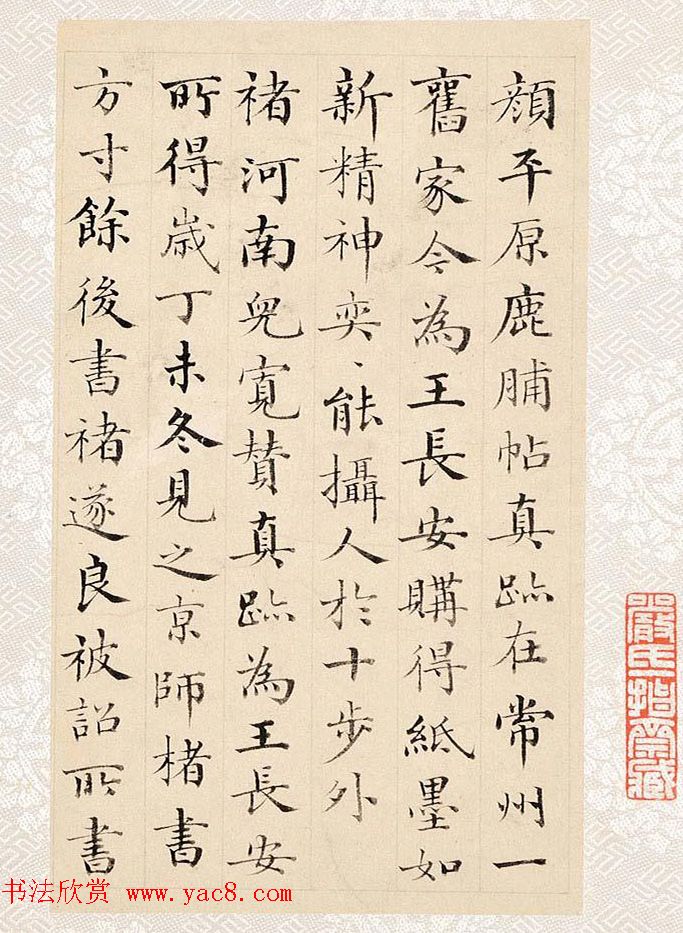 顔平原鹿脯帖真跡在常州一
舊家今為王長安購得紙墨如
新精神奕、能攝人於十步外
褚河南兒寛賛真跡為王長安
所得嵗丁未冬見之京師楮書
方寸餘後書褚遂良被詔所書
嚴氏指齋藏
书法欣赏 www.yac8.com